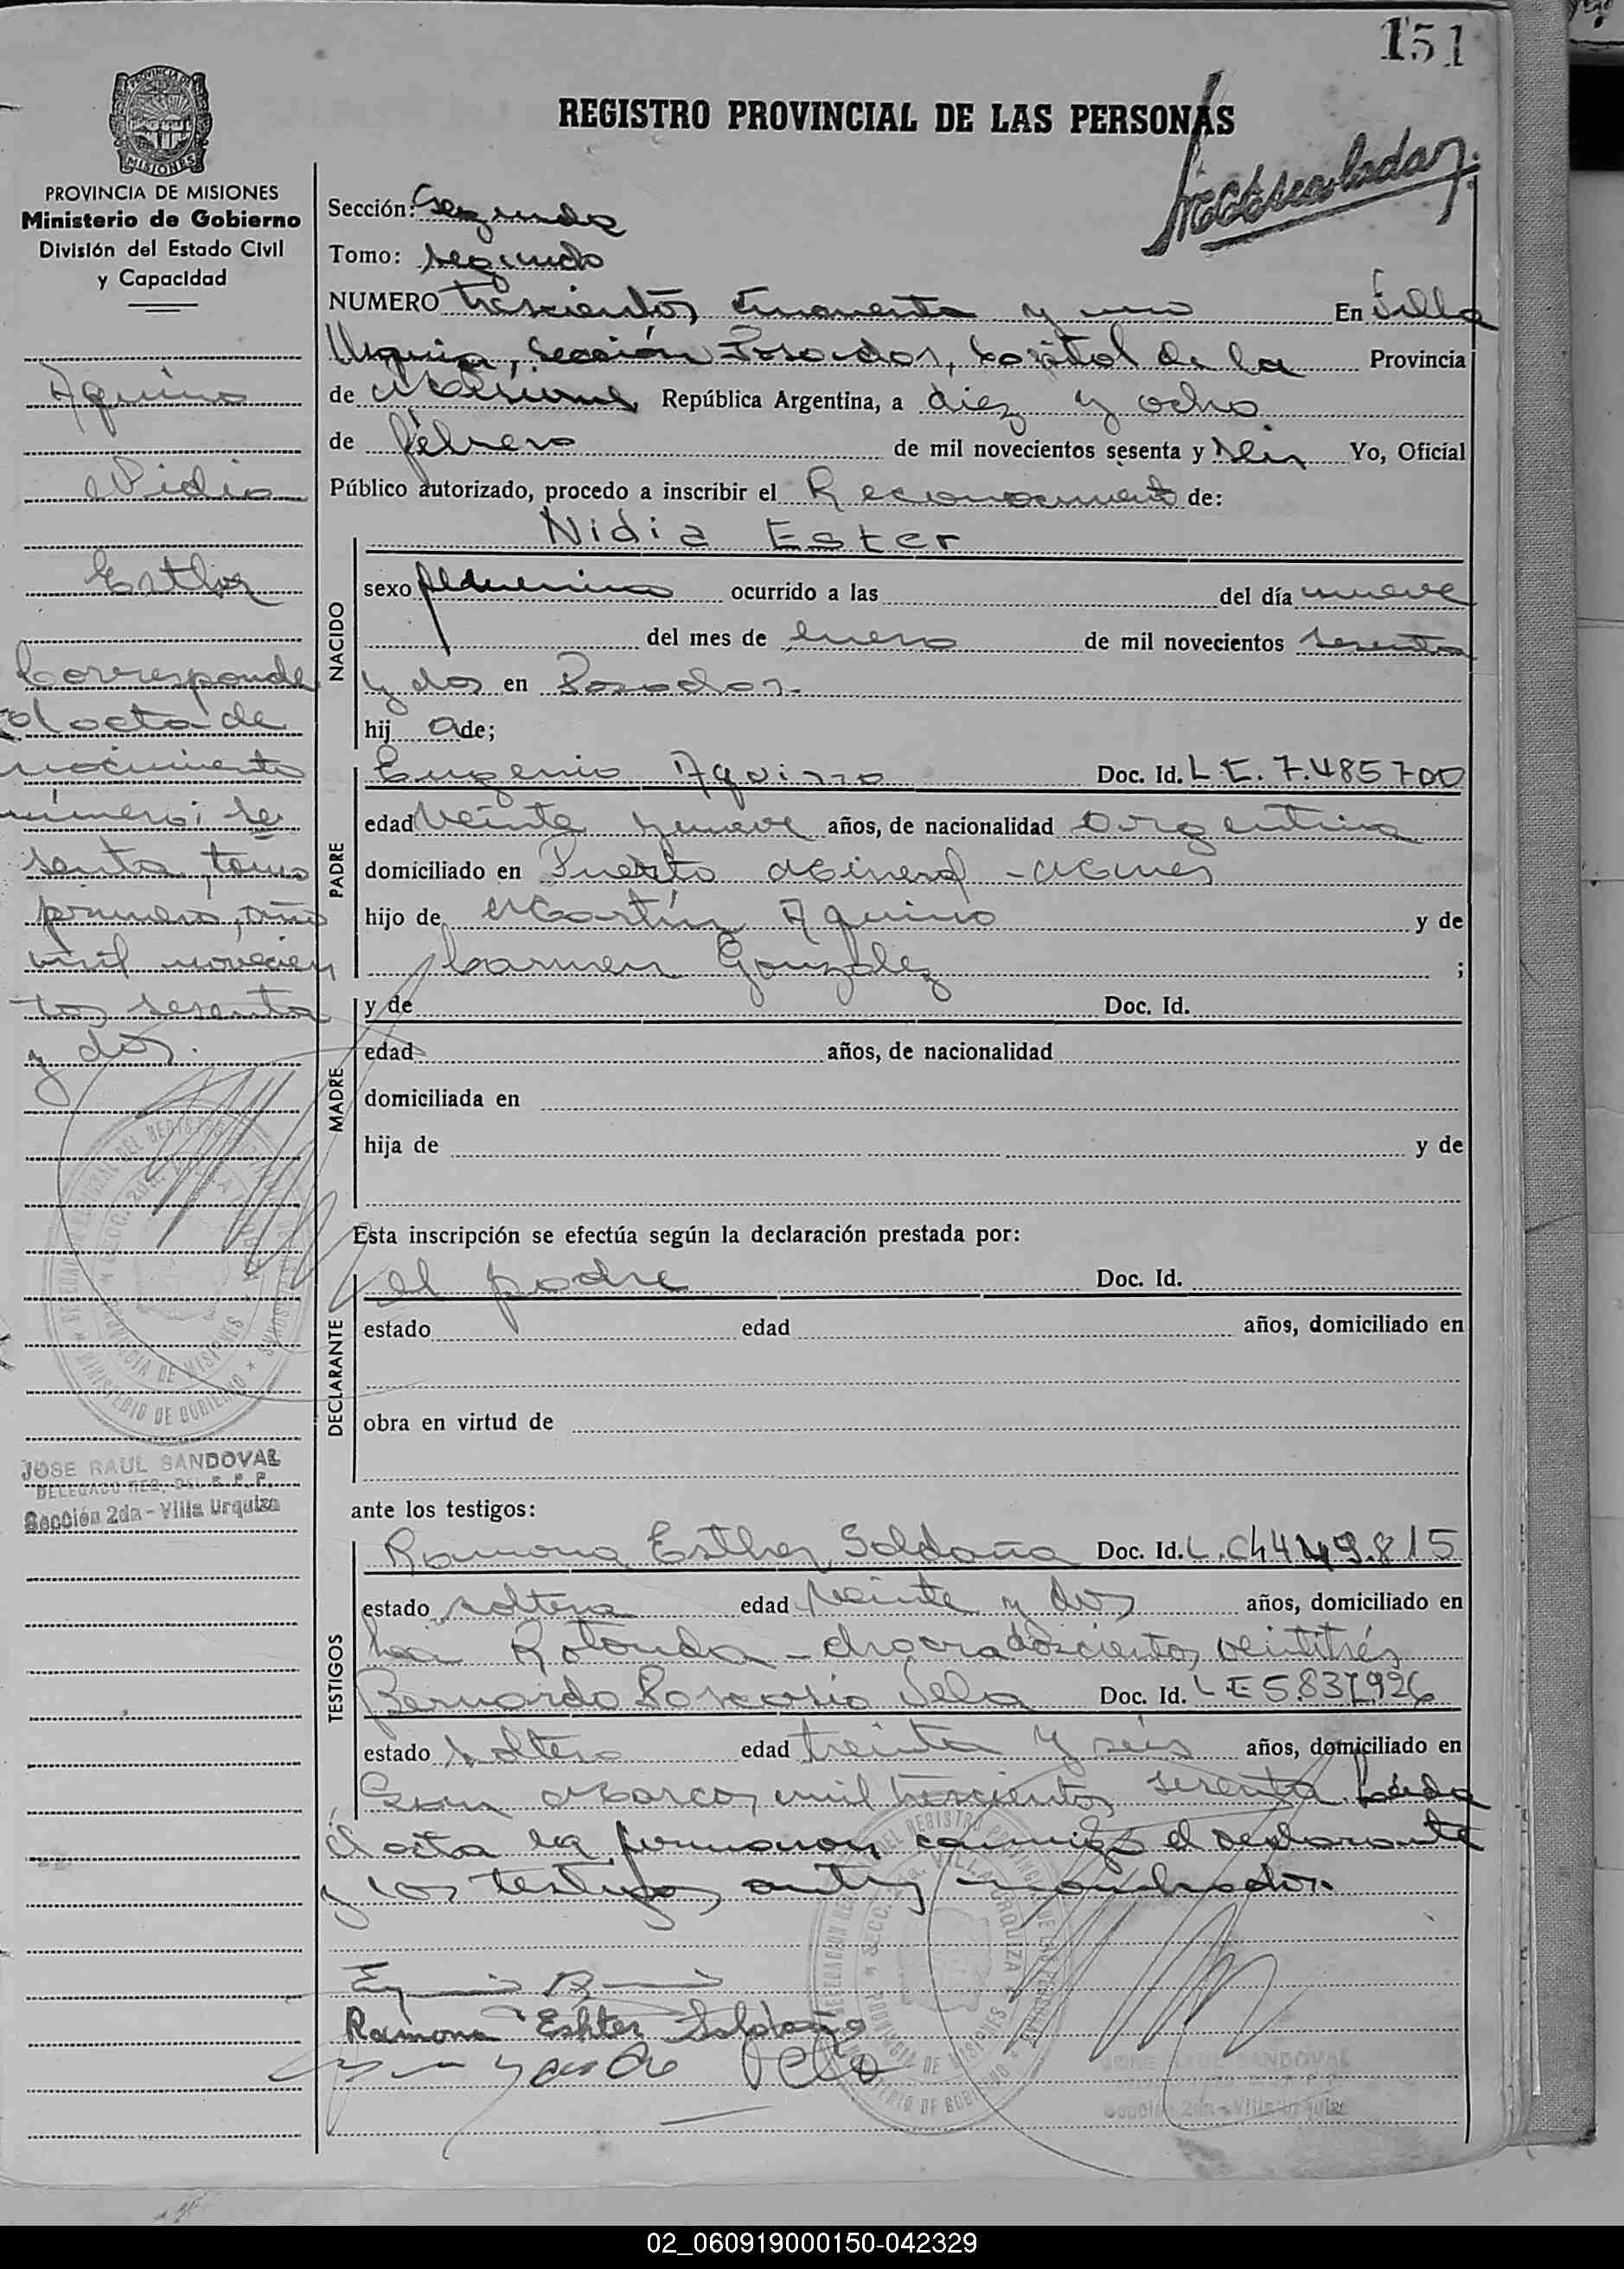 151
REGISTRO PROVINCIAL DE LAS PERSONAS
PROVINCIA DE MISIONES
Ministerio de Gobierno
División del Estado Civil
y Capacidad
Aquino
Nidia
Esther
Corresponde
al acta de
nacimiento
número: se
senta, tomo
primero, año
mil novecien
tos sesenta
y dos.
JOSE RAUL SANDOVAL
DELEGADO REG. DEL R. P. P.
Sección 2da - Villa Urquiza
Sección: Segunda
Tomo: segundo
NUMERO trescientos cincuenta y uno En Villa
Urquiza, Sección Posadas, Capital de la Provincia
de Misiones República Argentina, a diez y ocho
de febrero de mil novecientos sesenta y seis Yo, Oficial
Público autorizado, procedo a inscribir el Reconocimiento de:
NACIDO
Nidia Ester
sexo femenino ocurrido a las del día nueve
del mes de enero de mil novecientos sesenta
y dos en Posadas.
hij a de;
PADRE
Eugenio Aquino Doc. Id. L.E. 7.485700
edad veinte y nueve años, de nacionalidad argentina
domiciliado en Puerto Mineral - Mnes
hijo de Martín Aquino y de
Carmen González ;
MADRE
y de Doc. Id.
edad años, de nacionalidad
domiciliada en
hija de y de
Esta inscripción se efectúa según la declaración prestada por:
DECLARANTE
el padre Doc. Id.
estado edad años, domiciliado en
obra en virtud de
ante los testigos:
TESTIGOS
Ramona Esther Saldaña Doc. Id. L.C.
estado soltera edad veinte y dos años, domiciliado en
La Rotonda - chacra doscientos veintitrés
Bernardo Vela Doc. Id. L E
estado soltero edad treinta y seis años, domiciliado en
San Marcos mil trescientos sesenta. Leída
el acta la firmaron conmigo el declarante
y los testigos antes nombrados.
Ramona Eshter Saldaña
JOSE RAUL SANDOVAL
Sección 2da - Villa Urquiza
02_060919000150-042329